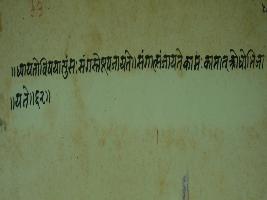 ॥ध्यायतोविषयान्पुंसः संगस्तेषूपजायते॥संगात्संजायतेकामः कामात्क्रोधोभिजा
॥यते॥६२॥